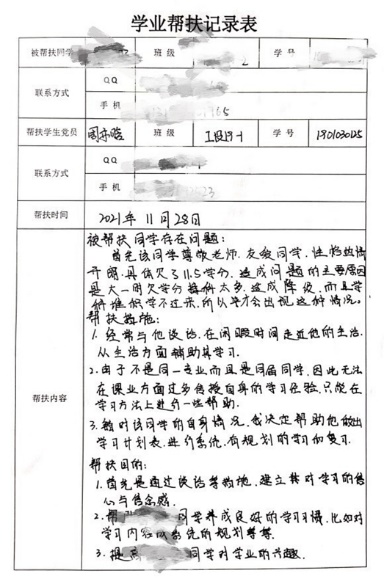 学业帮扶记录表
被帮扶同学 班 级 学 号
联系方式 QQ
手 机 65
帮扶学生党员 周亦晗 班 级 工段19-1 学 号 1901030125
联系方式 QQ
手 机
帮扶时间 2021年 11月 28日
帮扶内容
被帮扶同学存在问题:
首先该同学尊敬老师,友爱同学,性格热情
开朗,具体欠了11.5学分,造成问题的主要原因
是大一时欠学分 太多,造成降级,而且学
所以才会出现这种情况。
帮扶措施:
1.经常与他谈话,在闲暇时间走近他的生活,
从生活方面辅助其学习.
2.由于不是同一专业,而且是同届同学,因此无法
在课业方面过多传授自身的学习经验,只能在
学习方法上进行一些帮助.
3.针对该同学的自身情况,我决定帮助他做出
学习计划表,进行系统,有规划的学习和复习.
帮扶目的:
1.首先是通过谈话等措施,建立其对学习的信
心与信念感.
2.帮 同学养成良好的学习习惯,比如对
学习内容 系统的规划等等.
3.提高 同学对学业的兴趣.